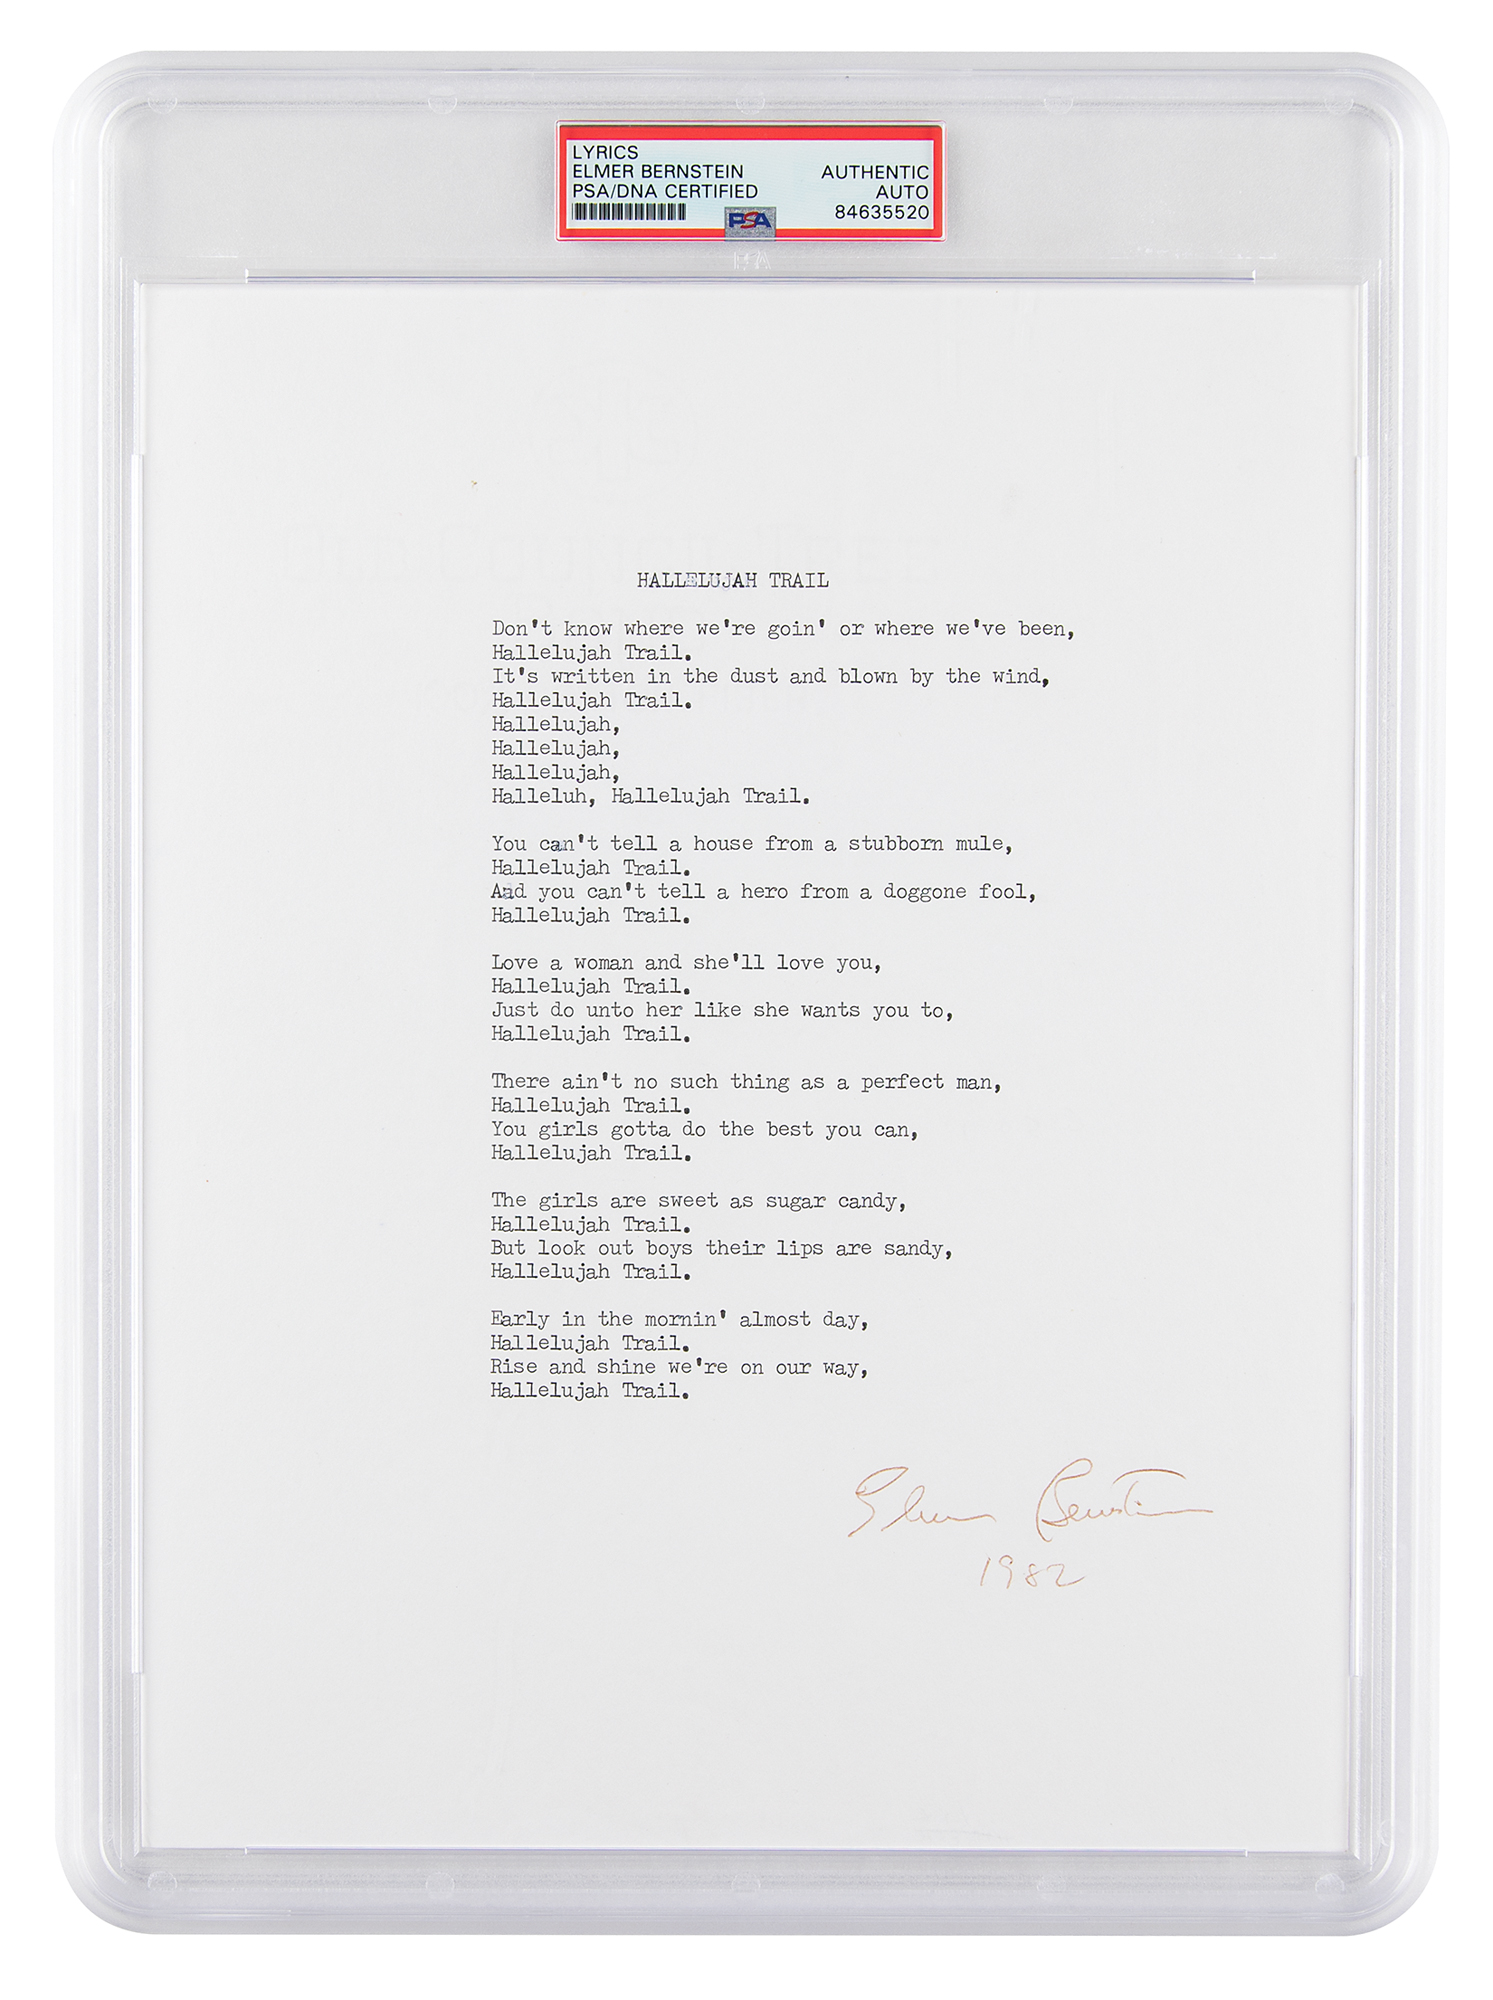 LYRICS
ELMER BERNSTEIN AUTHENTIC
PSA/DNA CERTIFIED AUTO
84635520
PSA
PSA
HALLELUJAH TRAIL
Don't know where we're goin' or where we've been,
Hallelujah Trail.
It's written in the dust and blown by the wind,
Hallelujah Trail.
Hallelujah,
Hallelujah,
Hallelujah,
Halleluh, Hallelujah Trail.
You can't tell a house from a stubborn mule,
Hallelujah Trail.
And you can't tell a hero from a doggone fool,
Hallelujah Trail.
Love a woman and she'll love you,
Hallelujah Trail.
Just do unto her like she wants you to,
Hallelujah Trail.
There ain't no such thing as a perfect man,
Hallelujah Trail.
You girls gotta do the best you can,
Hallelujah Trail.
The girls are sweet as sugar candy,
Hallelujah Trail.
But look out boys their lips are sandy,
Hallelujah Trail.
Early in the mornin' almost day,
Hallelujah Trail.
Rise and shine we're on our way,
Hallelujah Trail.
Elmer Bernstein
1982